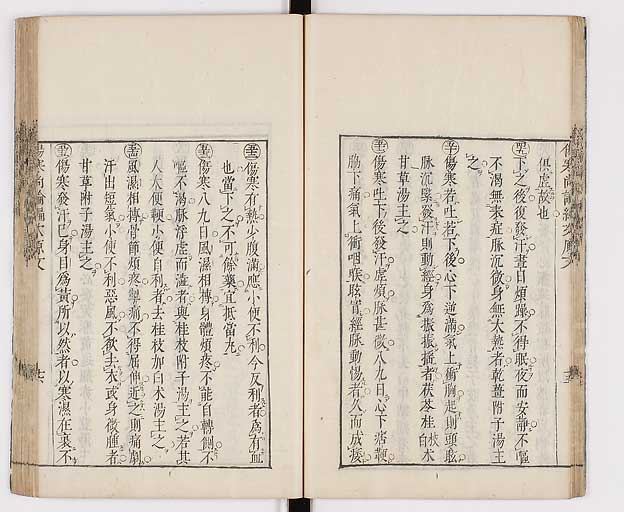 俱虛故也
下之後復發汗晝日煩躁不得眠夜而安靜不嘔
不渴無表症脈沉微身無大熱者乾薑附子湯主
之
傷寒若吐若下後心下逆滿氣上衝胸起則頭眩
脈沉緊發汗則動經身爲振振搖者茯苓桂枝白朮
甘草湯主之
傷寒吐下後發汗虛煩脈甚微八九日心下痞鞕
脇下痛氣上衝咽喉眩冒經脈動惕者久而成痿
傷寒有熱少腹滿應小便不利今反利者爲有血
也當下之不可餘藥宜抵當丸
傷寒八九日風濕相搏身體煩疼不能自轉側不
嘔不渴脈浮虛而濇者與桂枝附子湯主之若其
人大便鞕小便自利者去桂枝加白朮湯主之
風濕相搏骨節煩疼掣痛不得屈伸近之則痛劇
汗出短氣小便不利惡風不欲去衣或身微腫者
甘草附子湯主之
傷寒發汗已身目爲黃所以然者以寒濕在裏不